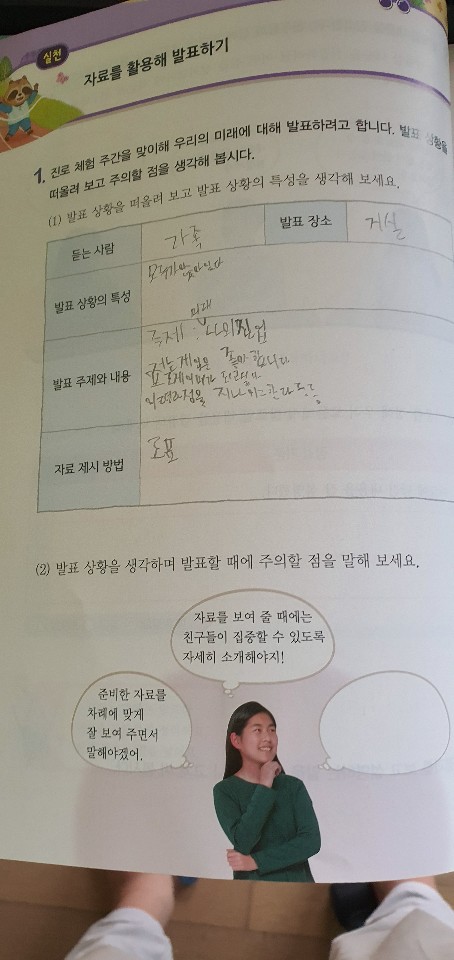 실천
자료를 활용해 발표하기
1. 진로 체험 주간을 맞이해 우리의 미래에 대해 발표하려고 합니다. 발표 상황을
떠올려 보고 주의할 점을 생각해 봅시다.
(1) 발표 상황을 떠올려 보고 발표 상황의 특성을 생각해 보세요.
듣는 사람
가족
발표 장소
거실
발표 상황의 특성
미래
주제 : 나의 직업
발표 주제와 내용
저는 게임을 좋아합니다
자료 제시 방법
도표
(2) 발표 상황을 생각하며 발표할 때에 주의할 점을 말해 보세요.
자료를 보여 줄 때에는
친구들이 집중할 수 있도록
자세히 소개해야지!
준비한 자료를
차례에 맞게
잘 보여 주면서
말해야겠어.